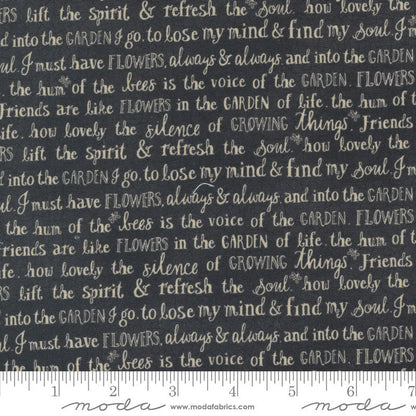 RS lift the spirit & refresh the soul. how lovely the
and into the GARDEN I go. to lose my mind & find my soul. I m
oul. I must have FLOWERS, always & always. and into the GARDEN
. the hum of the bees is the voice of the GARDEN. FLOWERS
Friends are like FLOWERS in the GARDEN of life. the hum of t
life. how lovely the silence of GROWING things. Friends
RS lift the spirit & refresh the soul. how lovely the
and into the GARDEN I go. to lose my mind & find my soul. I m
ul. I must have FLOWERS, always & always. and into the GARDEN
. the hum of the bees is the voice of the GARDEN. FLOWERS
Friends are like FLOWERS in the GARDEN of life. the hum of t
life. how lovely the silence of GROWING things. Friends
RS lift the spirit & refresh the soul. how lovely the
into the GARDEN I go. to lose my mind & find my soul. I m
ul. I must have FLOWERS, always & always. and into the GARDEN
. the hum of the bees is the voice of the GARDEN. FLOWERS
1 2 3 4 5 6
moda www.modafabrics.com moda